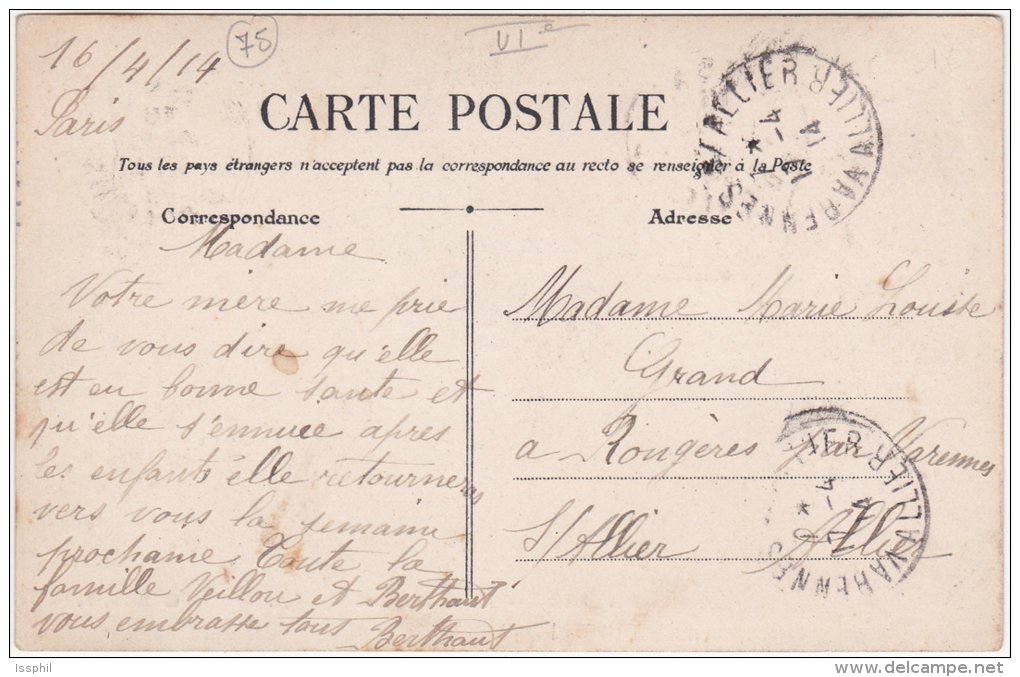 16/4/14
75
VIe
Paris
CARTE POSTALE
Tous les pays étrangers n'acceptent pas la correspondance au recto se renseigner à la Poste
Correspondance
Madame
Votre mère me prie
de vous dire qu'elle
est en bonne sante et
qu'elle s'ennuee apres
les enfants elle retourneras
vers vous la semaine
prochaine Toute la
famille Veillou et Berthaut
vous embrasse tous Berthaut
Adresse
Madame Marie Louise
Grand
a Rongères par Varennes
S/Allier Allier
VARENNES ST ALLIER ALLIER
VARENNES ALLIER ALLIER
Issphil
delcampe.net